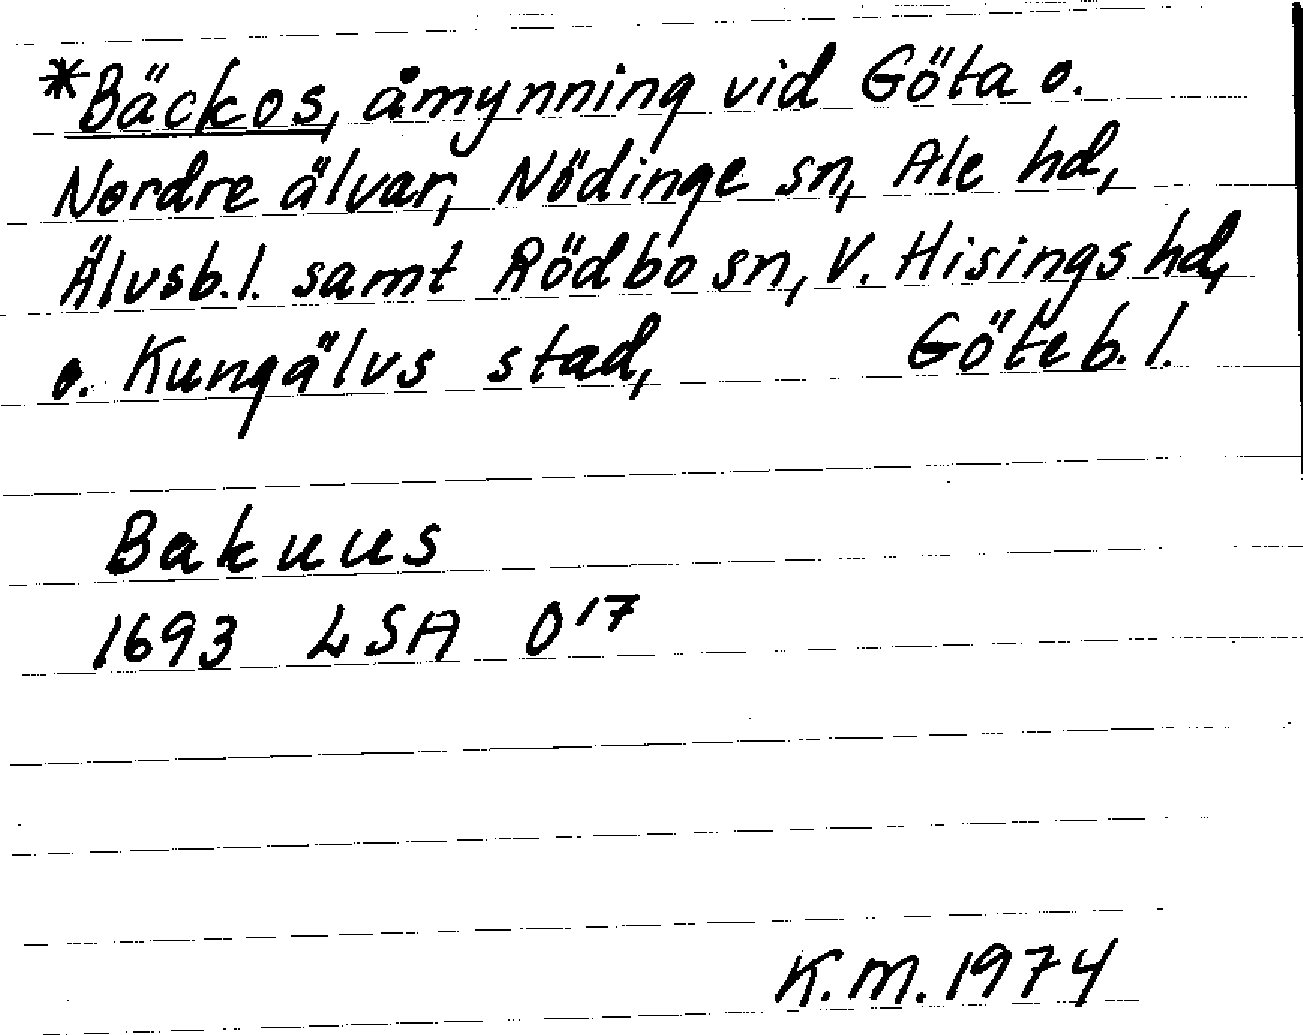 *Bäckos, åmynning vid Göta o.
Nordre älvar, Nödinge sn, Ale hd,
Älvsb.l. samt Rödbo sn, V. Hisings hd,
o. Kungälvs stad, Göteb.l.
Bakuus
1693 LSA O¹⁷
K.M. 1974